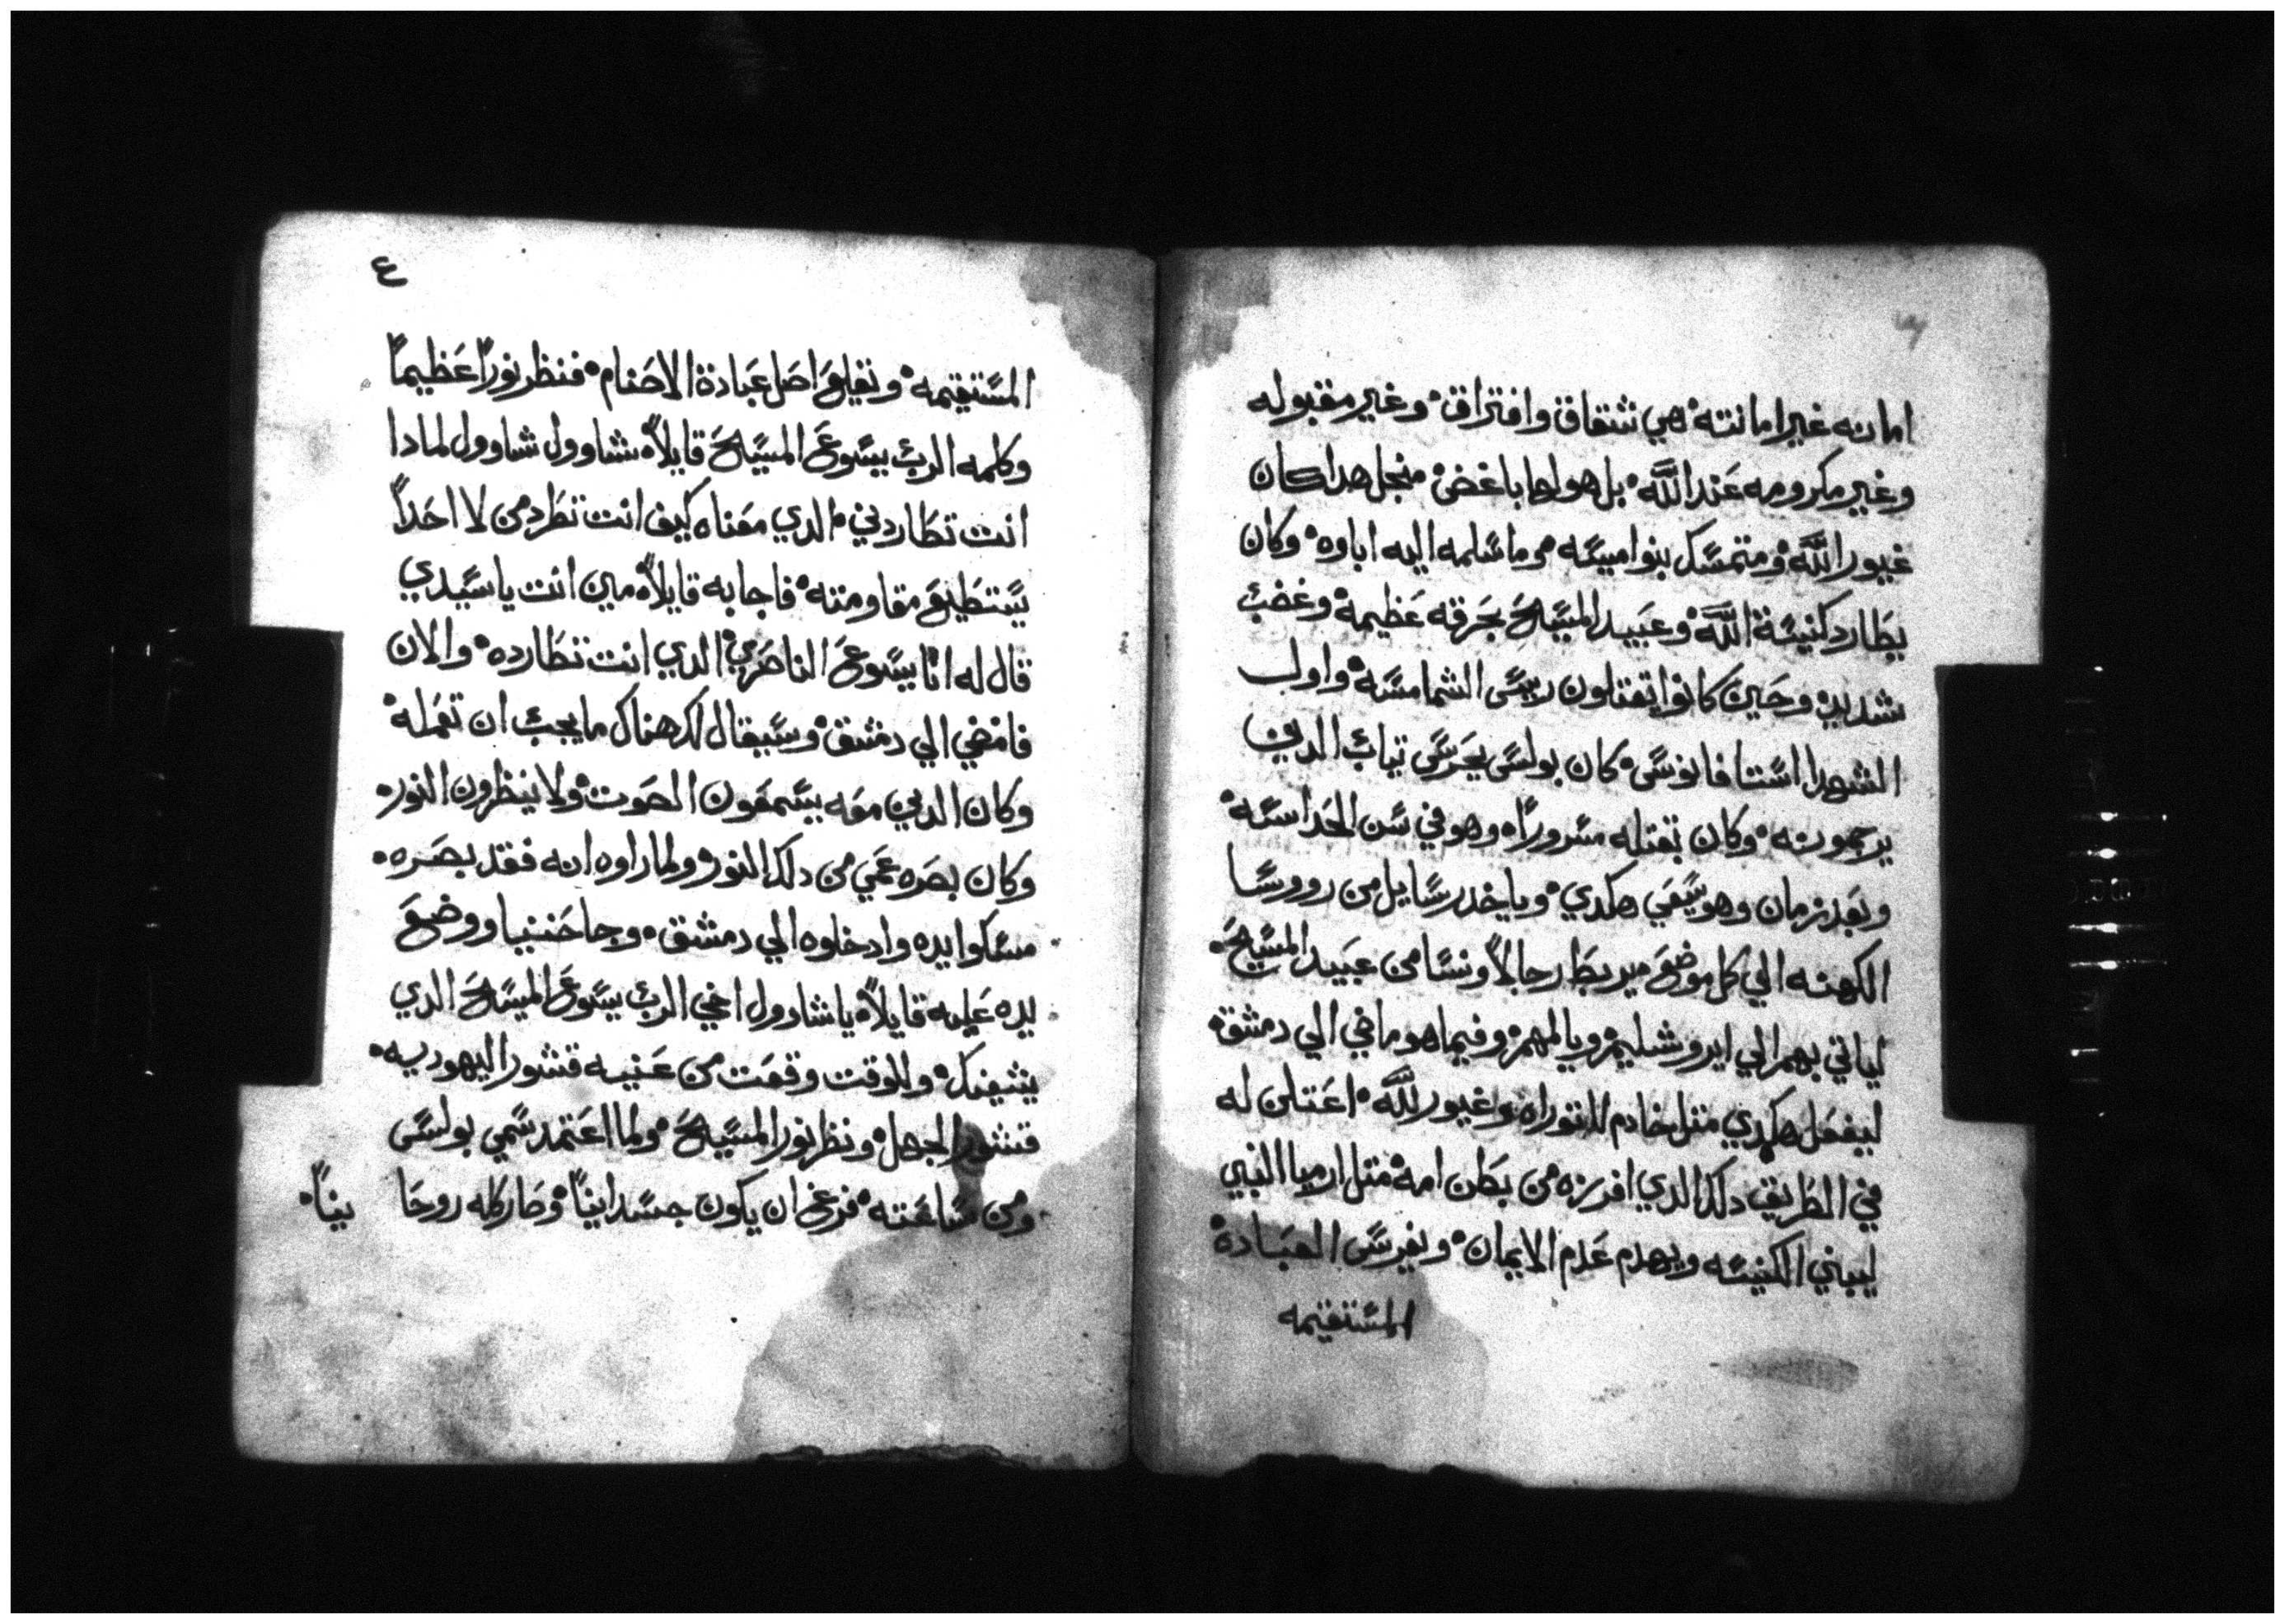 امانه غير امانته هي شقاق وافتراق وغير مقبوله
وغير مكرومه عند الله بل هو لها باغض منجل هدا كان
غيور الله ومتمسك بنواميسه وما سلمه اليه اباوه وكان
يطارد كنيسة الله وعبيد المسيح بحرقه عظيمة وغضب
شديد وحين كانوا يقتلون رييس الشمامسه واول
الشهدا استافانوس كان بولس يحرس تياب الدين
يرجمونه وكان بقتله مسروراً وهو في سن الحداسه
وبعد زمان وهو يسعي هكدي وياخد رسايل من رووسا
الكهنه الي كل موضع ميربطا رجالاً ونسا من عبيد المسيح
لياتي بهم الي ايروشليم ويالمهم وفيما هو ماضي الي دمشق
ليفعل هكدي متل خادم للتوراه وغيور لله اعتلن له
في الطريق دلك الدي افرزه من بطن امه متل ارميا النبي
ليبني الكنيسه ويهدم عدم الايمان ويغرس العبادة
المستقيمه
٤
المستقيمه ويقلع اصل عبادة الاصنام فنظر نوراً عظيماً
وكلمه الرب يسوع المسيح قايلاً شاوول شاوول لمادا
انت تطاردني الدي معناه كيف انت تطرد من لا احداً
يستطيع مقاومته فاجابه قايلاً مين انت ياسيدي
قال له انا يسوع الناصري الدي انت تطارده والان
فامضي الي دمشق وسيقال لك هناك ما يجب ان تعمله
وكان الدين معه يسمعون الصوت ولا ينظرون النور
وكان بصره عمي من دلك النور ولما راوه انه فقد بصره
مسكوا يده وادخلوه الي دمشق وجا حننيا ووضع
يده عليه قايلاً ياشاوول اخي الرب يسوع المسيح الدي
يشفيك وللوقت وقعت من عنيه قشور اليهوديه
قشور الجهل ونظر نور المسيح ولما اعتمد سمي بولس
ومن ساعته فرغ ان يكون جسدانياً وصار كله روحا نياً